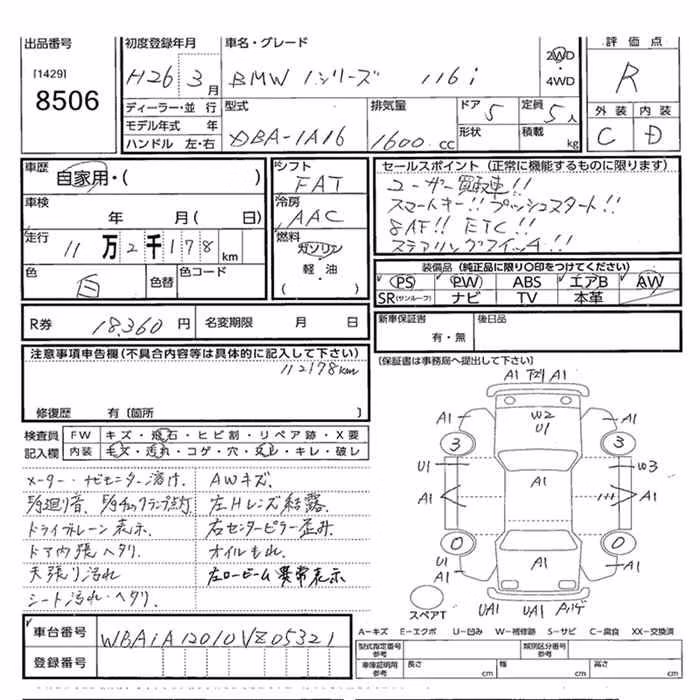 出品番号
[1429]
8506
初度登録年月
H26 3月
車名・グレード
BMW 1シリーズ 116i
2WD
・
4WD
評価点
R
外装 内装
C D
ディーラー・並行
モデル年式 年
ハンドル 左・右
型式
DBA-1A16
排気量
1600 cc
ドア 5
形状
定員 5人
積載 kg
車歴
自家用・( )
車検
年 月( 日)
走行
11万2千178km
色
白
色替
色コード
シフト
FAT
冷房
AAC
燃料
ガソリン
軽・油
( )
セールスポイント (正常に機能するものに限ります)
ユーザー買取車!!
スマートキー!! プッシュスタート!!
8AF!! ETC!!
装備品 (純正品に限り○印をつけてください)
PS PW ABS エアB AW
SR(サンルーフ) ナビ TV 本革
R券 18,360円
名変期限 月 日
新車保証書
有・無
後日品
(保証書は事務局へ提出して下さい)
注意事項申告欄(不具合内容等は具体的に記入して下さい)
112178km
修復歴 有 [箇所 ]
検査員
記入欄
FW キズ・飛石・ヒビ割・リペア跡・X要
内装 キズ・汚れ・コゲ・穴・欠し・キレ・破レ
メーター・ナビモニター溶け.
AWキズ.
左Hレンズ結露.
ドライブトレーン表示.
右センターピラー歪み.
ドア内張ヘタリ.
オイルもれ.
天張り汚れ
左ロービーム異常表示
シート汚れ・ヘタリ.
A1 A1
A1 W2 A1
U1
3 3
U1 W3
A1 A1 A1
0 0
U1
A1 A1 A1
スペアT
UA1 UA1
車台番号
WBA1A12010VZ05321
登録番号
A-キズ E-エクボ U-凹み W-補修跡 S-サビ C-腐食 XX-交換済
型式指定番号
参考
類別区分番号
参考
車庫証明用
参考
長さ cm
幅 cm
高さ cm